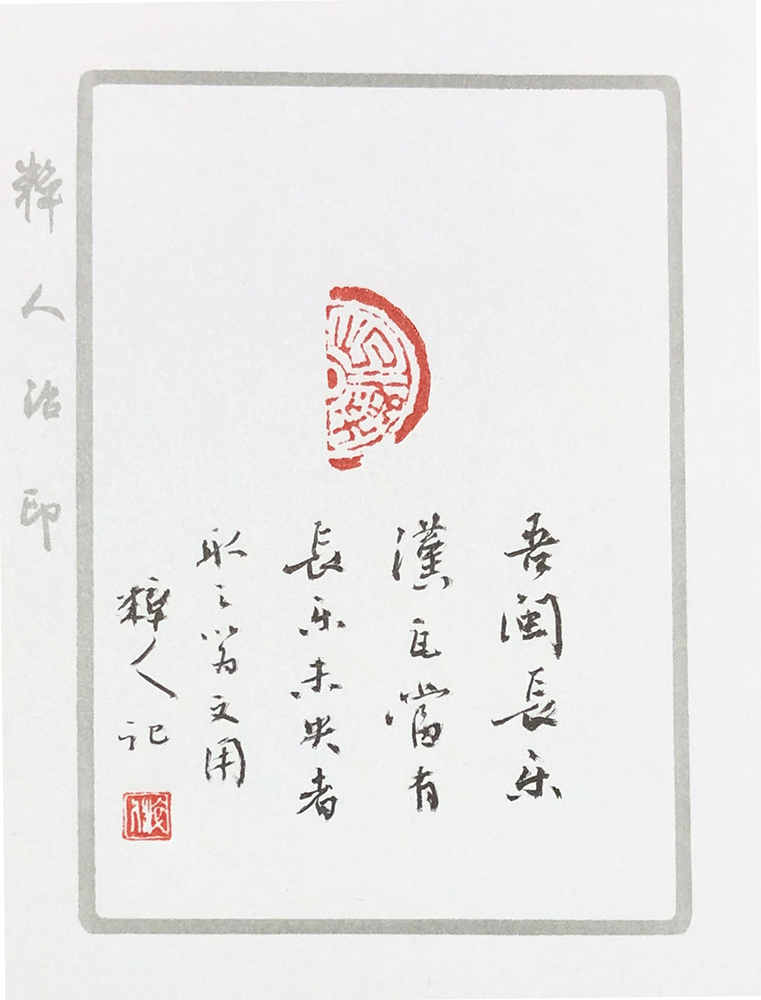 吾閩長乐
漢瓦當有
長乐未央者
取之以为文用
粹人記
粹人治印